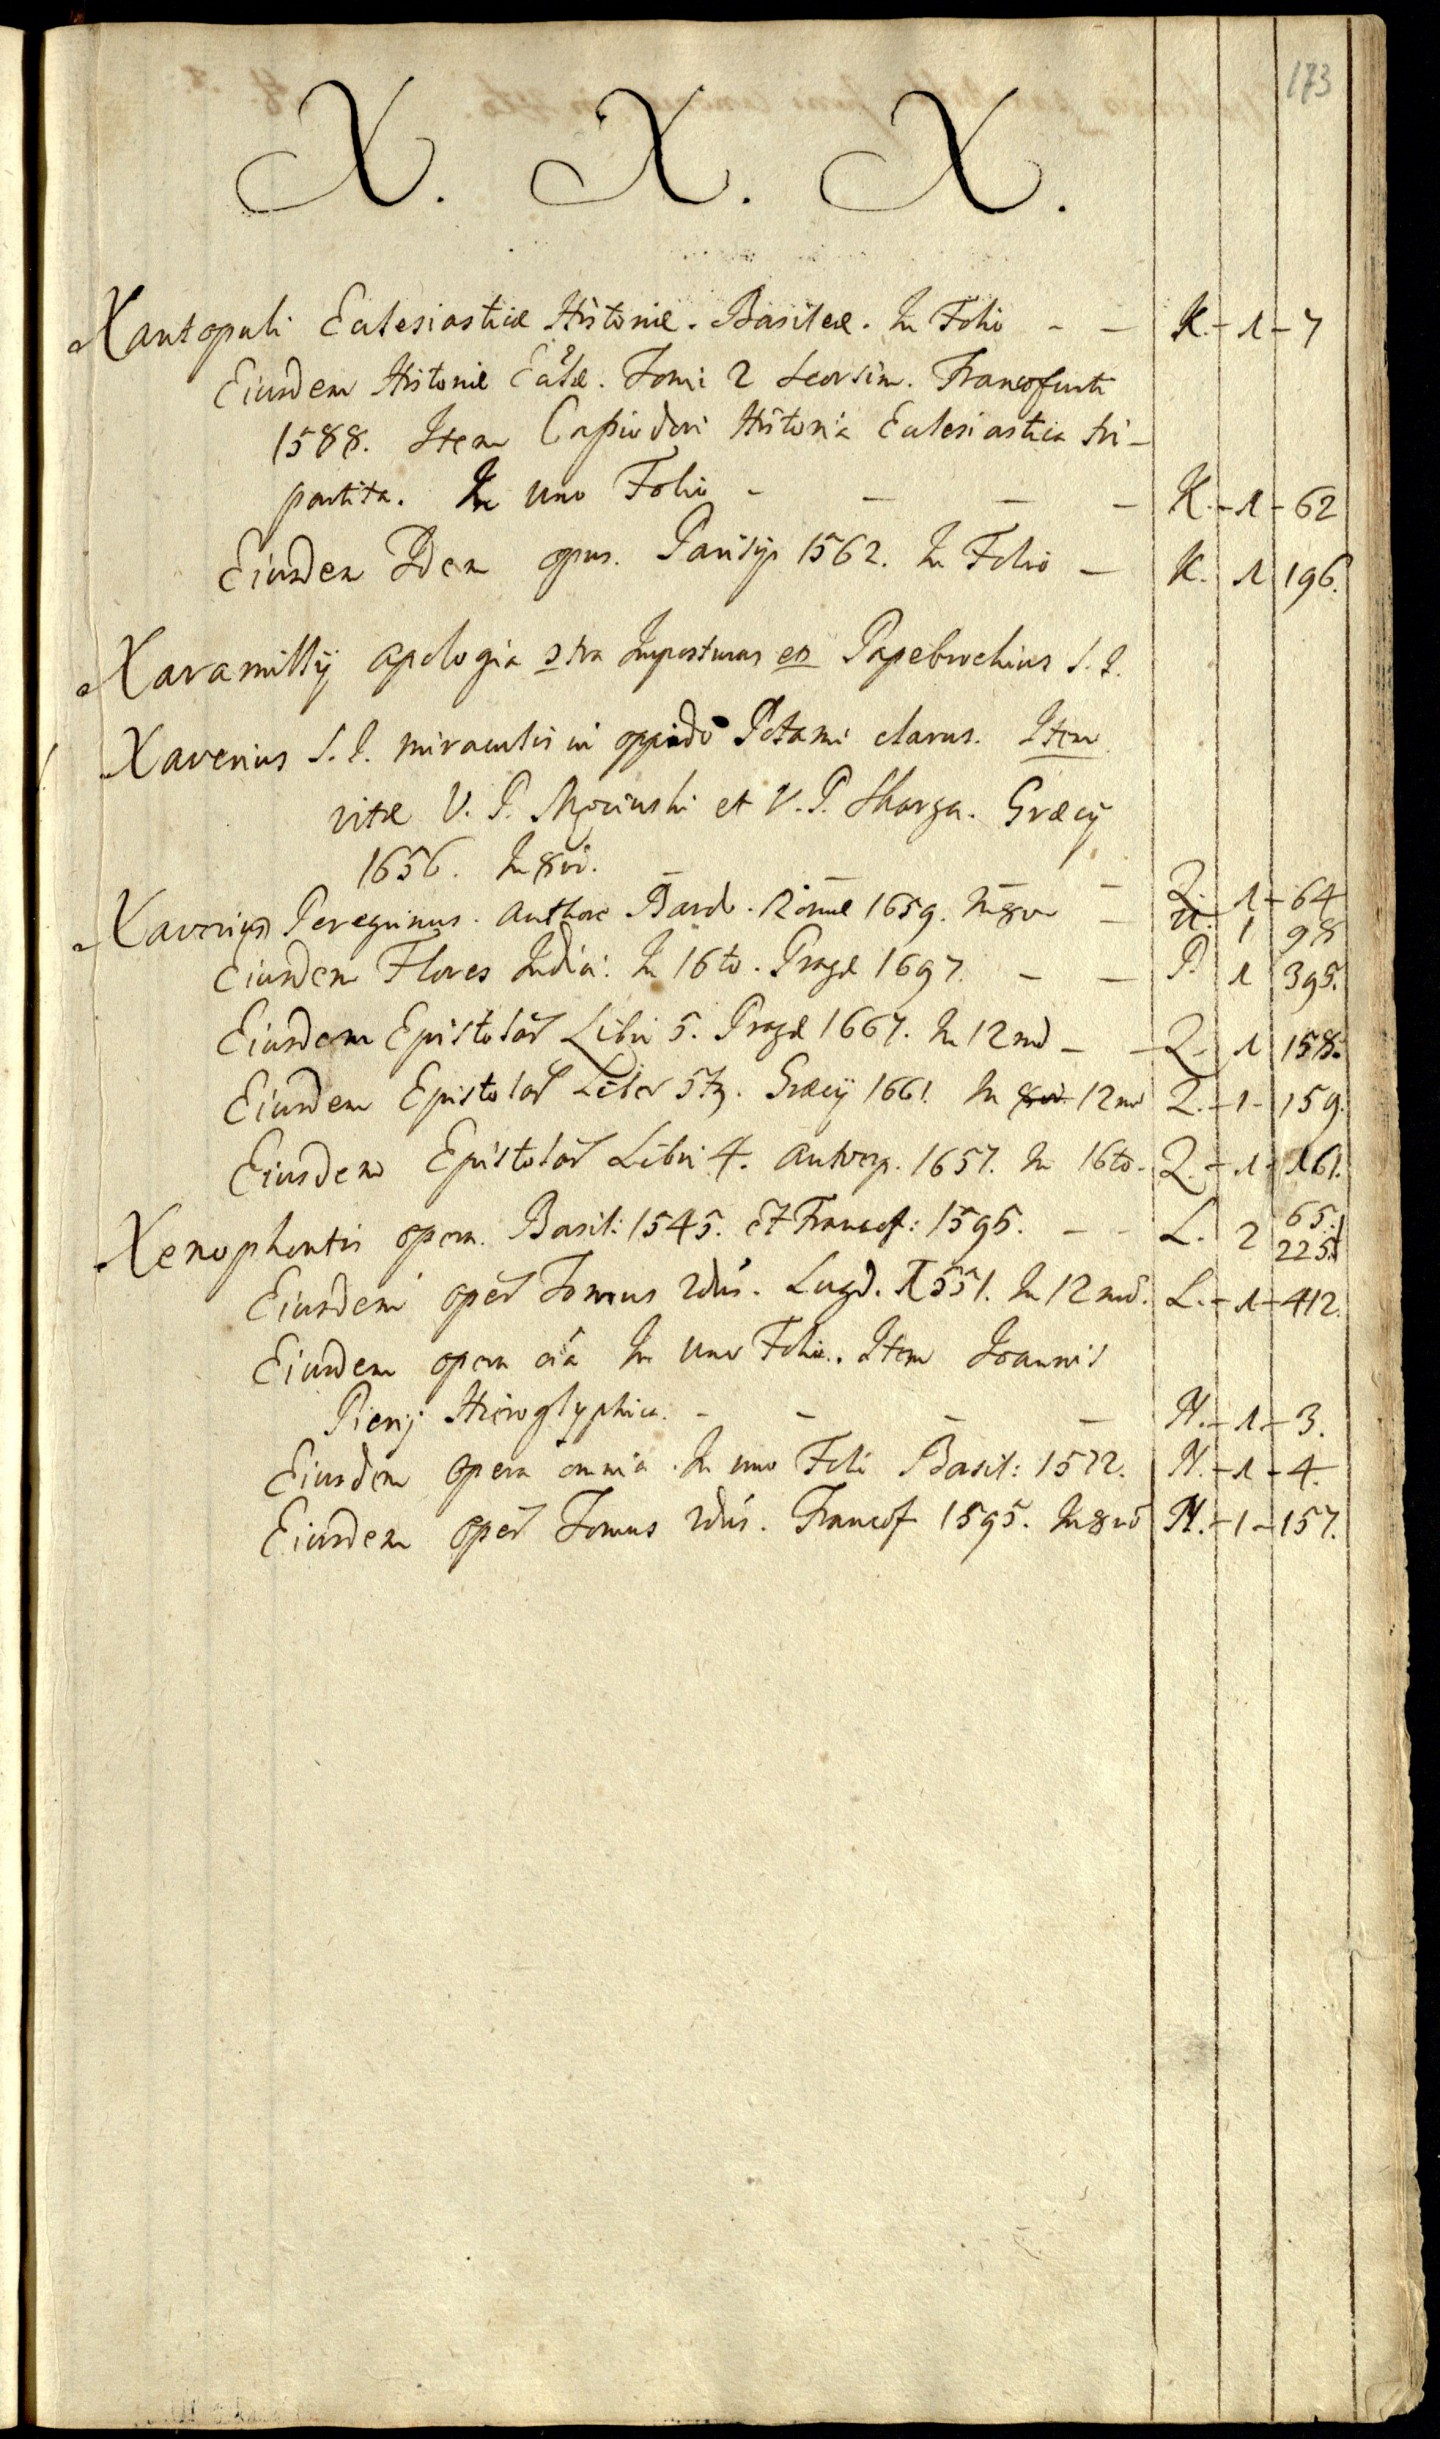 173
X. X. X.
Xantopuli Eclesiasticæ Historiæ. Basileæ. In Folio - - K. - 1 - 7
Eiusdem Historiæ Eccłæ. Tomi 2 seorsim. Francofurti
1588. Item Cassiodori Historia Eclesiastica tri-
partita. In uno Folio - - - - K. - 1 - 62
Eiusdem Idem opus. Parisijs 1562. In Folio - K. 1 196.
Xaramillij apologia ɔtra Imposturas Papebrochius S. I.
Xaverius S. I. miraculis in oppido Potami clarus. Item
vitæ V. P. Mecinski et V. P. Skarga. Græcij
1656. In 8vo. - - - - Q. 1 - 64
Xaverius Peregrinus. Authore Bard. Romæ 1659. In 8vo - 1 98
Eiusdem Flores Indici. In 16to. Pragæ 1697. - - P. 1 395.
Eiusdem Epistolar̃ Libri 5. Pragæ 1667. In 12mo - - Q. 1 158.
Eiusdem Epistolar̃ Liber 5tus. Græcij 1661. In 8vo. 12mo Q. - 1 - 159.
Eiusdem Epistolar̃ Libri 4. Antverp. 1657. In 16to. Q. - 1 - 161.
Xenophontis opera. Basil: 1545. et Francof: 1595. - - L. 2 65. 225.
Eiusdem oper̃ Tomus 2dus. Lugd. 1551. In 12mo. L. - 1 - 412.
Eiusdem opera oĩa In uno Folio. Item Joannis
Pierij Hieroglyphica. - - - - N. - 1 - 3.
Eiusdem opera omnia. In uno Foli Basil: 1572. N. - 1 - 4.
Eiusdem oper̃ Tomus 2dus. Francof 1595. In 8vo N. - 1 - 157.